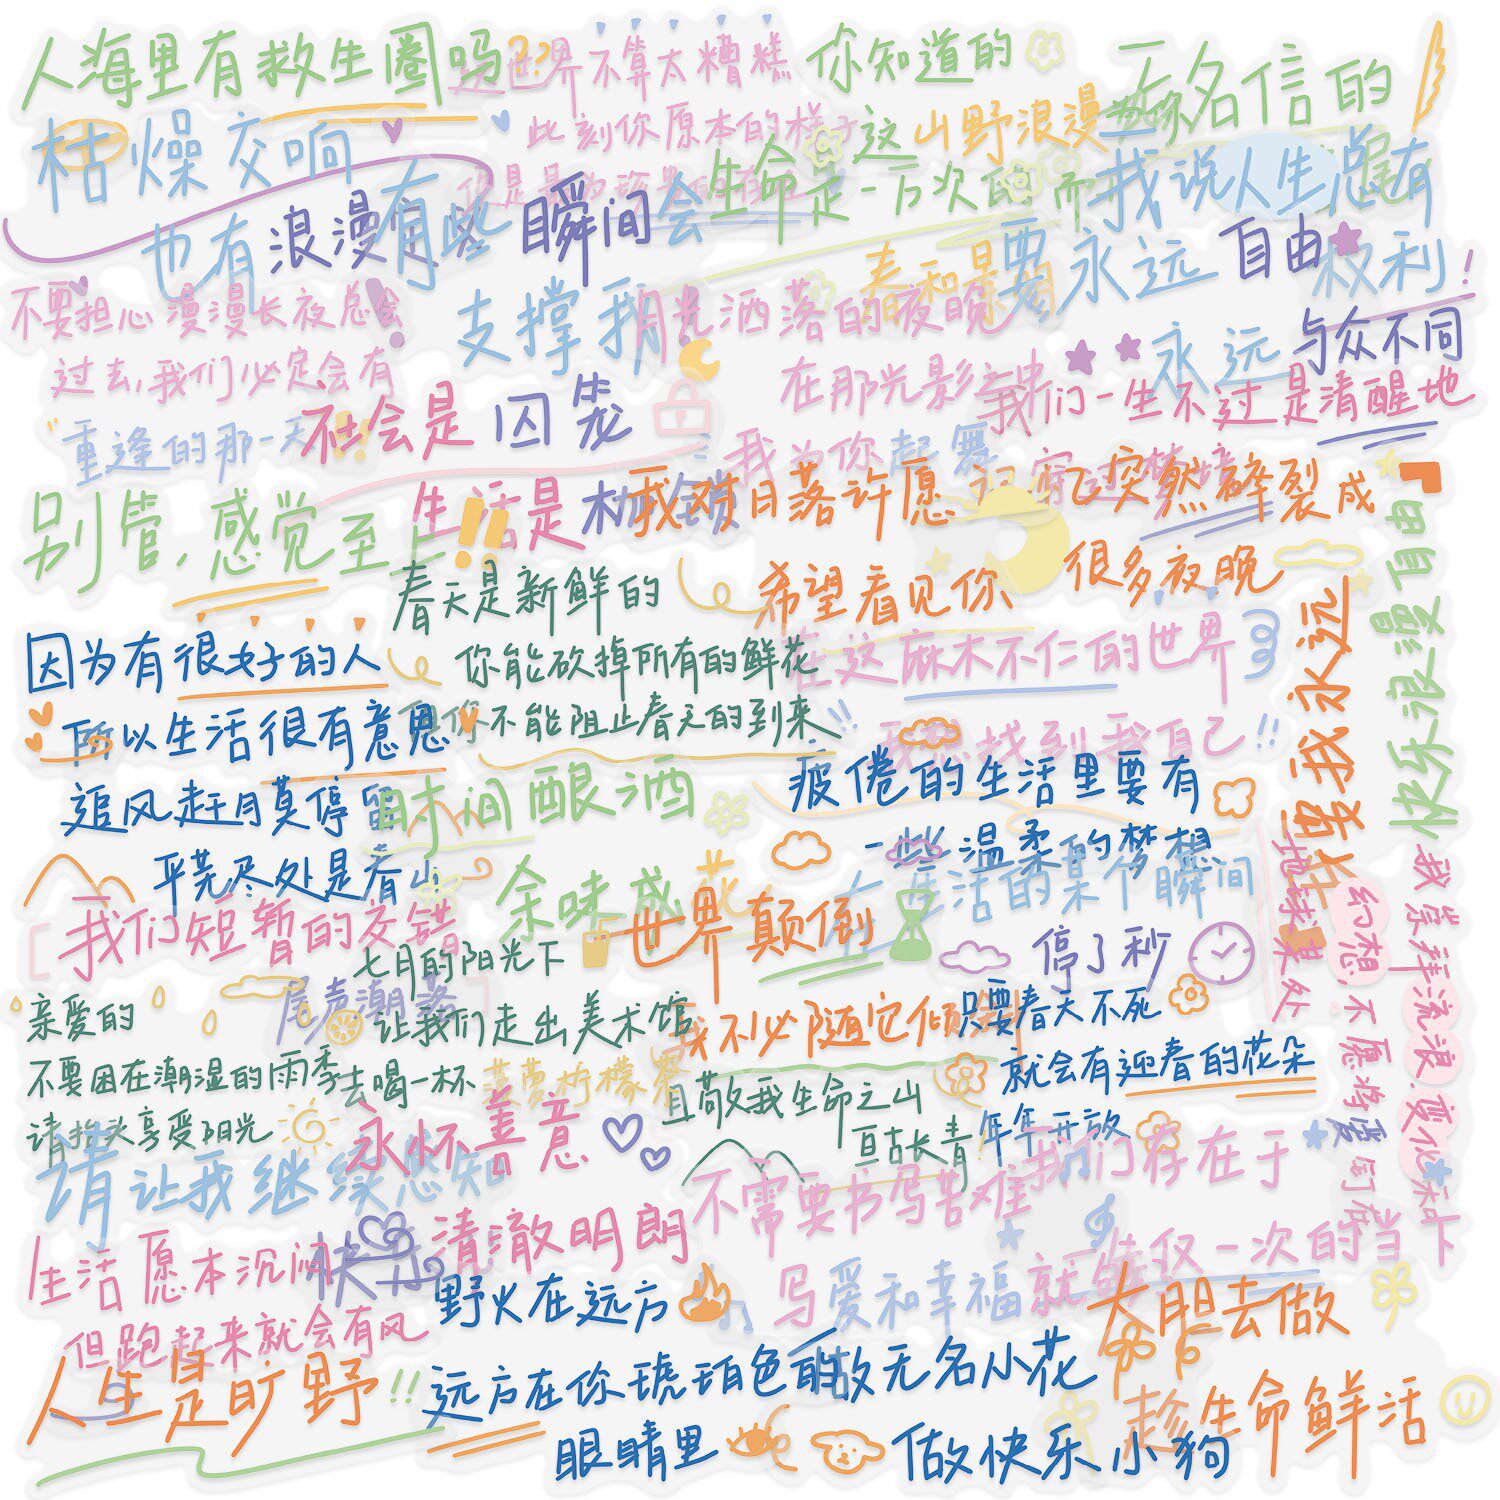 人海里有救生圈吗??
这世界不算太糟糕
你知道的
无名信的
枯燥交响
此刻你原本的样子
这山野浪漫
也有浪漫
有些瞬间会
生命是一万次的
我说人生总有
支撑我
春和景明
要永远自由
权利!
不要担心漫漫长夜总会
过去,我们必定会有
重逢的那一天
月光洒落的夜晚
在那光影之中
我为你起舞
永远与众不同
社会是囚笼
生活是枷锁
我们一生不过是清醒地
穿过梦境
别管,感觉至上!!
我对日落许愿
希望看见你
突然碎裂成
很多夜晚
春天是新鲜的
你能砍掉所有的鲜花
但你不能阻止春天的到来
在这麻木不仁的世界
我想找到我自己!!
因为有很好的人
所以生活很有意思
追风赶月莫停留
平芜尽处是春山
时间酿酒
余味成花
疲倦的生活里要有
一些温柔的梦想
在生活的某个瞬间
停了秒
我们短暂的交错
尾声潮落
七月的阳光下
让我们走出美术馆
去喝一杯菠萝柠檬茶
世界颠倒
我不必随它倾斜
只要春天不死
就会有迎春的花朵
年年开放
亲爱的
不要困在潮湿的雨季
请抬头享受阳光
且敬我生命之山
亘古长青
请让我继续感知
永怀善意
清澈明朗
快乐
不需要书写苦难
写爱和幸福就
我们存在于
仅仅一次的当下
生活愿本沉闷
但跑起来就会有风
野火在远方
远方在你琥珀色的
眼睛里
人生是旷野!!
做无名小花
做快乐小狗
大胆去做
趁生命鲜活
快乐浪漫自由
要我永远
地球某处
幻想,不愿将
我崇拜流浪,变化和